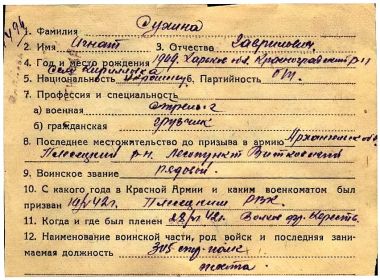 1. Фамилия Сухина
2. Имя Игнат 3. Отчество Гаврилович
4. Год и место рождения 1909. Харьков обл. Красноградский р-н
село Кирилловка
5. Национальность украинец 6. Партийность б/п
7. Профессия и специальность
а) военная стрелок
б) гражданская грузчик
8. Последнее местожительство до призыва в армию Архангельск обл
Плесецкий р-н. лесопункт
9. Воинское звание рядовой
10. С какого года в Красной Армии и каким военкоматом был
призван 42г. Плесецким РВК.
11. Когда и где был пленен 42г. Волхов фр. Кересть
12. Наименование воинской части, род войск и последняя зани-
маемая должность стр. полк
пехота